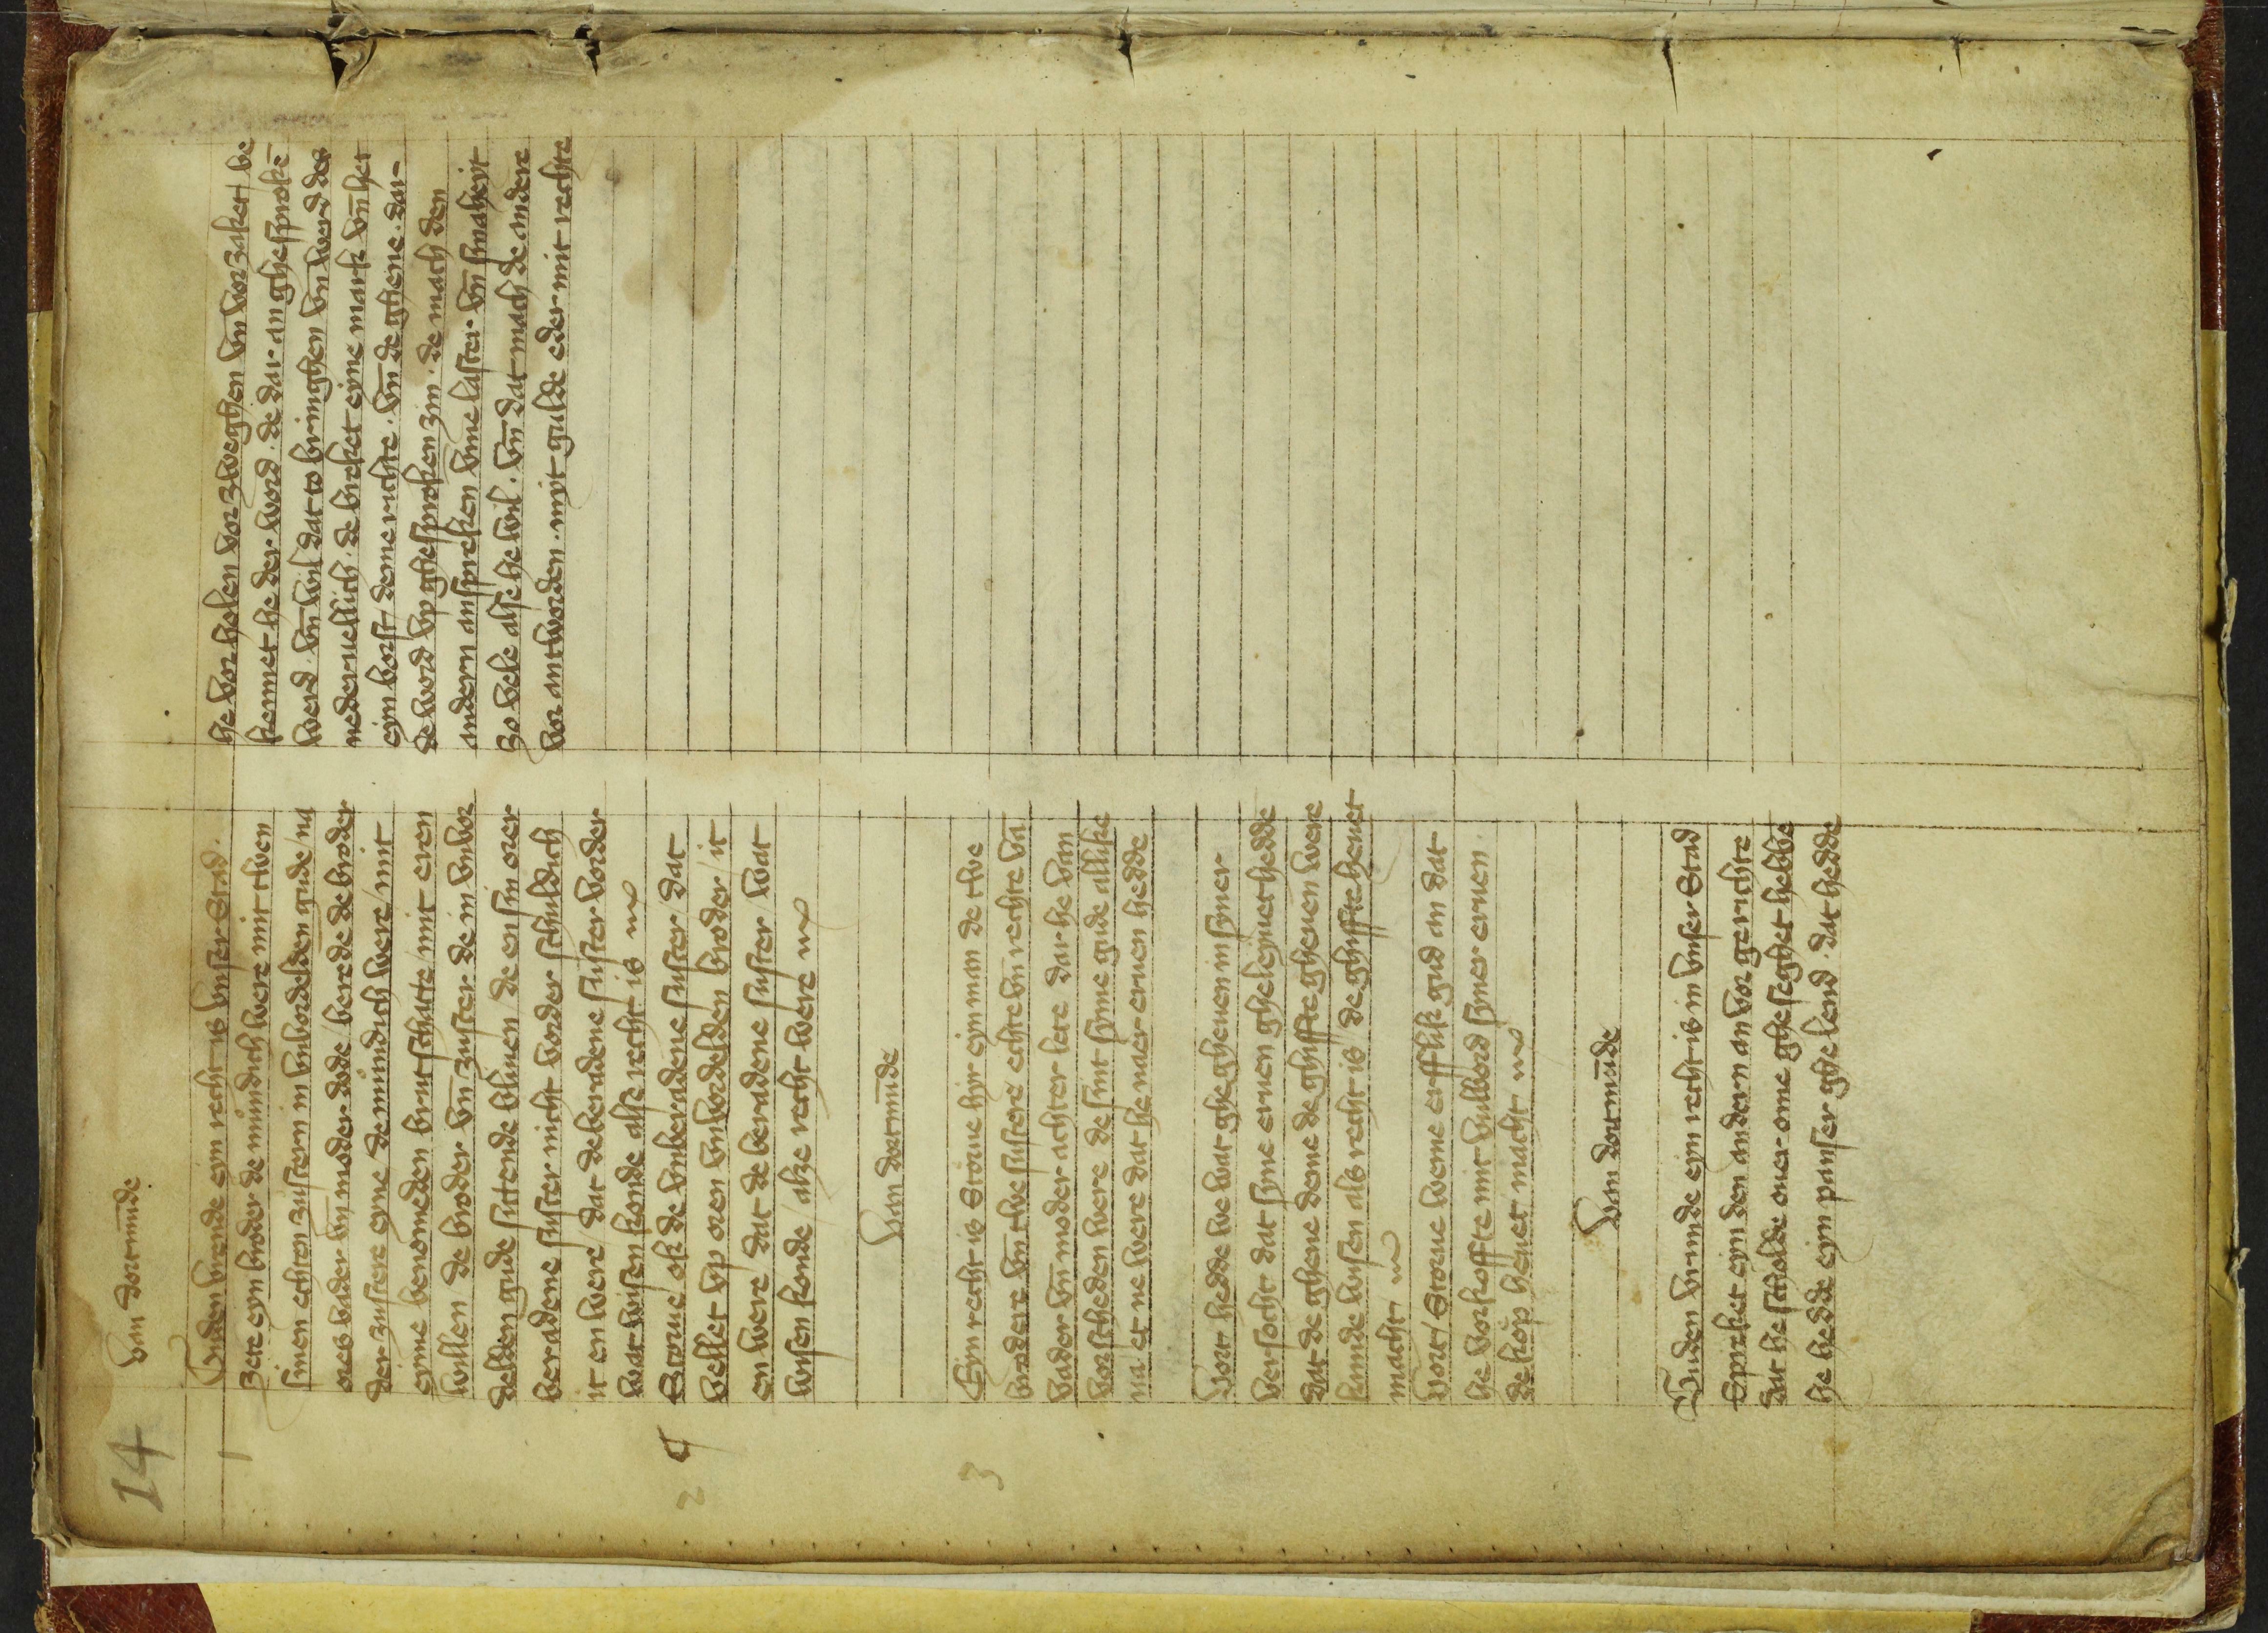 14
van dortmūde
Guden vrende eyn recht is vnser Stad.
1 Zete eyn broder de mündich were mit twen
sinen echten zustern in vnbordelden gude / na
ores vader vn̄ moder dode / berede de broder
der zustere eyne de mündich were / mit
eyme benomeden brutschatte / mit eren
willen / de broder vn̄ zuster de in vnvor
delden gude sittende bliuen de en sin orer
beradene suster nicht vorder schuldich
it en were / dat de beradene suster vorder
wat wisen konde alse recht is
2 Storue / ok de vnberadene suster dat
vellet vp oren vnvordelden broder / it
en were / dat de beradene suster / wat
wisen konde / alze recht were
Van dortmūde
3 Eyn recht is Storue hir eyn man de twe
brodere vn̄ twe sustere echte vn̄ rechte vā
vader vn̄ moder achter lete dar he van
vorscheden were de sint syme gude allike
na et ne were dat he ner eruen hedde
Vort hedde we wat ghegheuen in syner
versocht dat syne eruen gheleynet hedde
dat de ghene deme de ghiffte gheuen were
kunde wisen als recht is de ghiffte heuet
macht
Vort / Storue weme erfflik gud an dat
he vorkoffte mit vulbord syner eruen.
de kop heuet macht
Van dortmūde
Guden vrunde eyn recht is in vnser Stad
Spreket eyn den andern an vor gerichte
dat he scholde ouer ome ghesecghet hebbe
he hedde eyn panser ghelend. dat hedde
he vorholen vorzweghen vn̄ vorzaket / be
kennet he der word. de dar an ghesprokē
werd. vn̄ wil dat to bringhen vn̄ werd des
nedervellich. de breket eyne mark vn̄ het
eyn borst / deme richte. vn̄ de ghene. dar
de word vp ghesproken zin. de mach den
andern anspreken vme laster vn̄ smaheyt
zo vele alse he wil. vn̄ dat mach de andere
vor antworden. myt gulde eder mit rechte